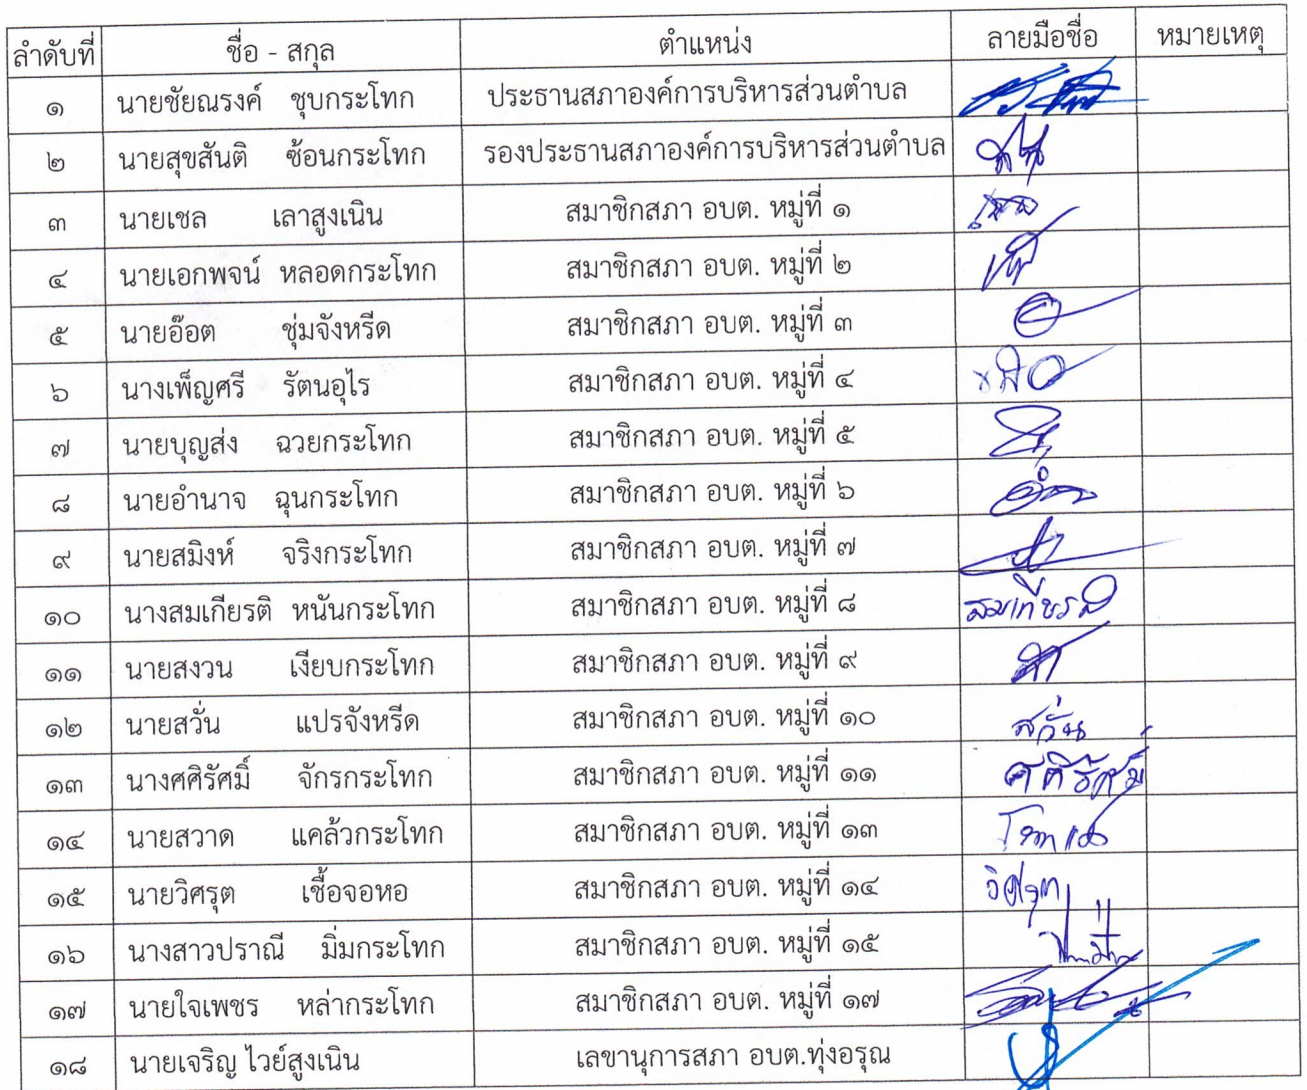 ลำดับที่ ชื่อ - สกุล ตำแหน่ง ลายมือชื่อ หมายเหตุ
๑ นายชัยณรงค์ ชุบกระโทก ประธานสภาองค์การบริหารส่วนตำบล
๒ นายสุขสันติ ซ้อนกระโทก รองประธานสภาองค์การบริหารส่วนตำบล
๓ นายเชล เลาสูงเนิน สมาชิกสภา อบต. หมู่ที่ ๑
๔ นายเอกพจน์ หลอดกระโทก สมาชิกสภา อบต. หมู่ที่ ๒
๕ นายอ๊อต ชุ่มจังหรีด สมาชิกสภา อบต. หมู่ที่ ๓
๖ นางเพ็ญศรี รัตนอุไร สมาชิกสภา อบต. หมู่ที่ ๔
๗ นายบุญส่ง ฉวยกระโทก สมาชิกสภา อบต. หมู่ที่ ๕
๘ นายอำนาจ ฉุนกระโทก สมาชิกสภา อบต. หมู่ที่ ๖
๙ นายสมิงห์ จริงกระโทก สมาชิกสภา อบต. หมู่ที่ ๗
๑๐ นางสมเกียรติ หนันกระโทก สมาชิกสภา อบต. หมู่ที่ ๘ สมเกียรติ
๑๑ นายสงวน เงียบกระโทก สมาชิกสภา อบต. หมู่ที่ ๙
๑๒ นายสวั่น แปรจังหรีด สมาชิกสภา อบต. หมู่ที่ ๑๐ สวั่น
๑๓ นางศศิรัศมิ์ จักรกระโทก สมาชิกสภา อบต. หมู่ที่ ๑๑ ศศิรัศมิ์
๑๔ นายสวาด แคล้วกระโทก สมาชิกสภา อบต. หมู่ที่ ๑๓
๑๕ นายวิศรุต เชื้อจอหอ สมาชิกสภา อบต. หมู่ที่ ๑๔ วิศรุต
๑๖ นางสาวปราณี มิ่มกระโทก สมาชิกสภา อบต. หมู่ที่ ๑๕
๑๗ นายใจเพชร หล่ากระโทก สมาชิกสภา อบต. หมู่ที่ ๑๗
๑๘ นายเจริญ ไวย์สูงเนิน เลขานุการสภา อบต.ทุ่งอรุณ